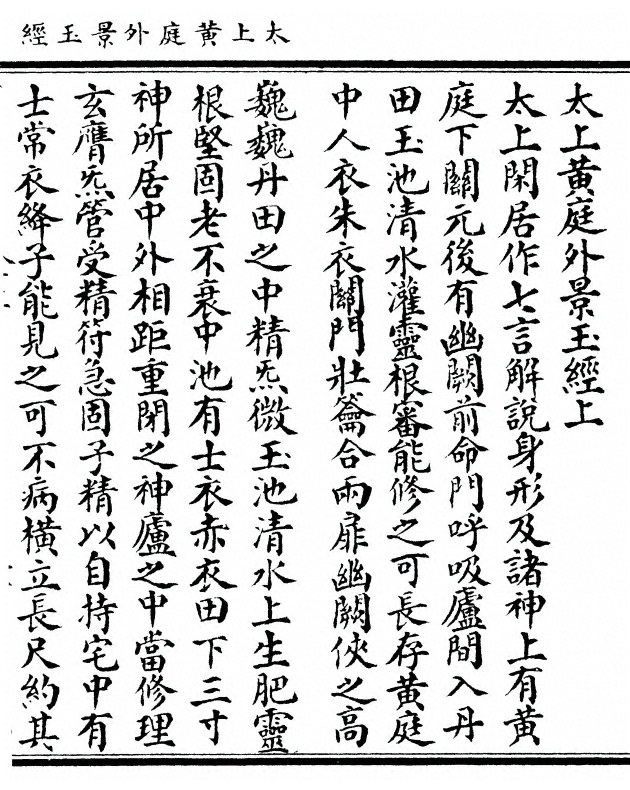 太上黃庭外景玉經
太上黃庭外景玉經上
太上閑居作七言解說身形及諸神上有黃
庭下關元後有幽闕前命門呼吸廬間入丹
田玉池清水灌靈根審能修之可長存黃庭
中人衣朱衣關門壯籥合兩扉幽闕俠之高
巍巍丹田之中精炁微玉池清水上生肥靈
根堅固老不衰中池有士衣赤衣田下三寸
神所居中外相距重閉之神廬之中當修理
玄膺炁管受精符急固子精以自持宅中有
士常衣絳子能見之可不病橫立長尺約其